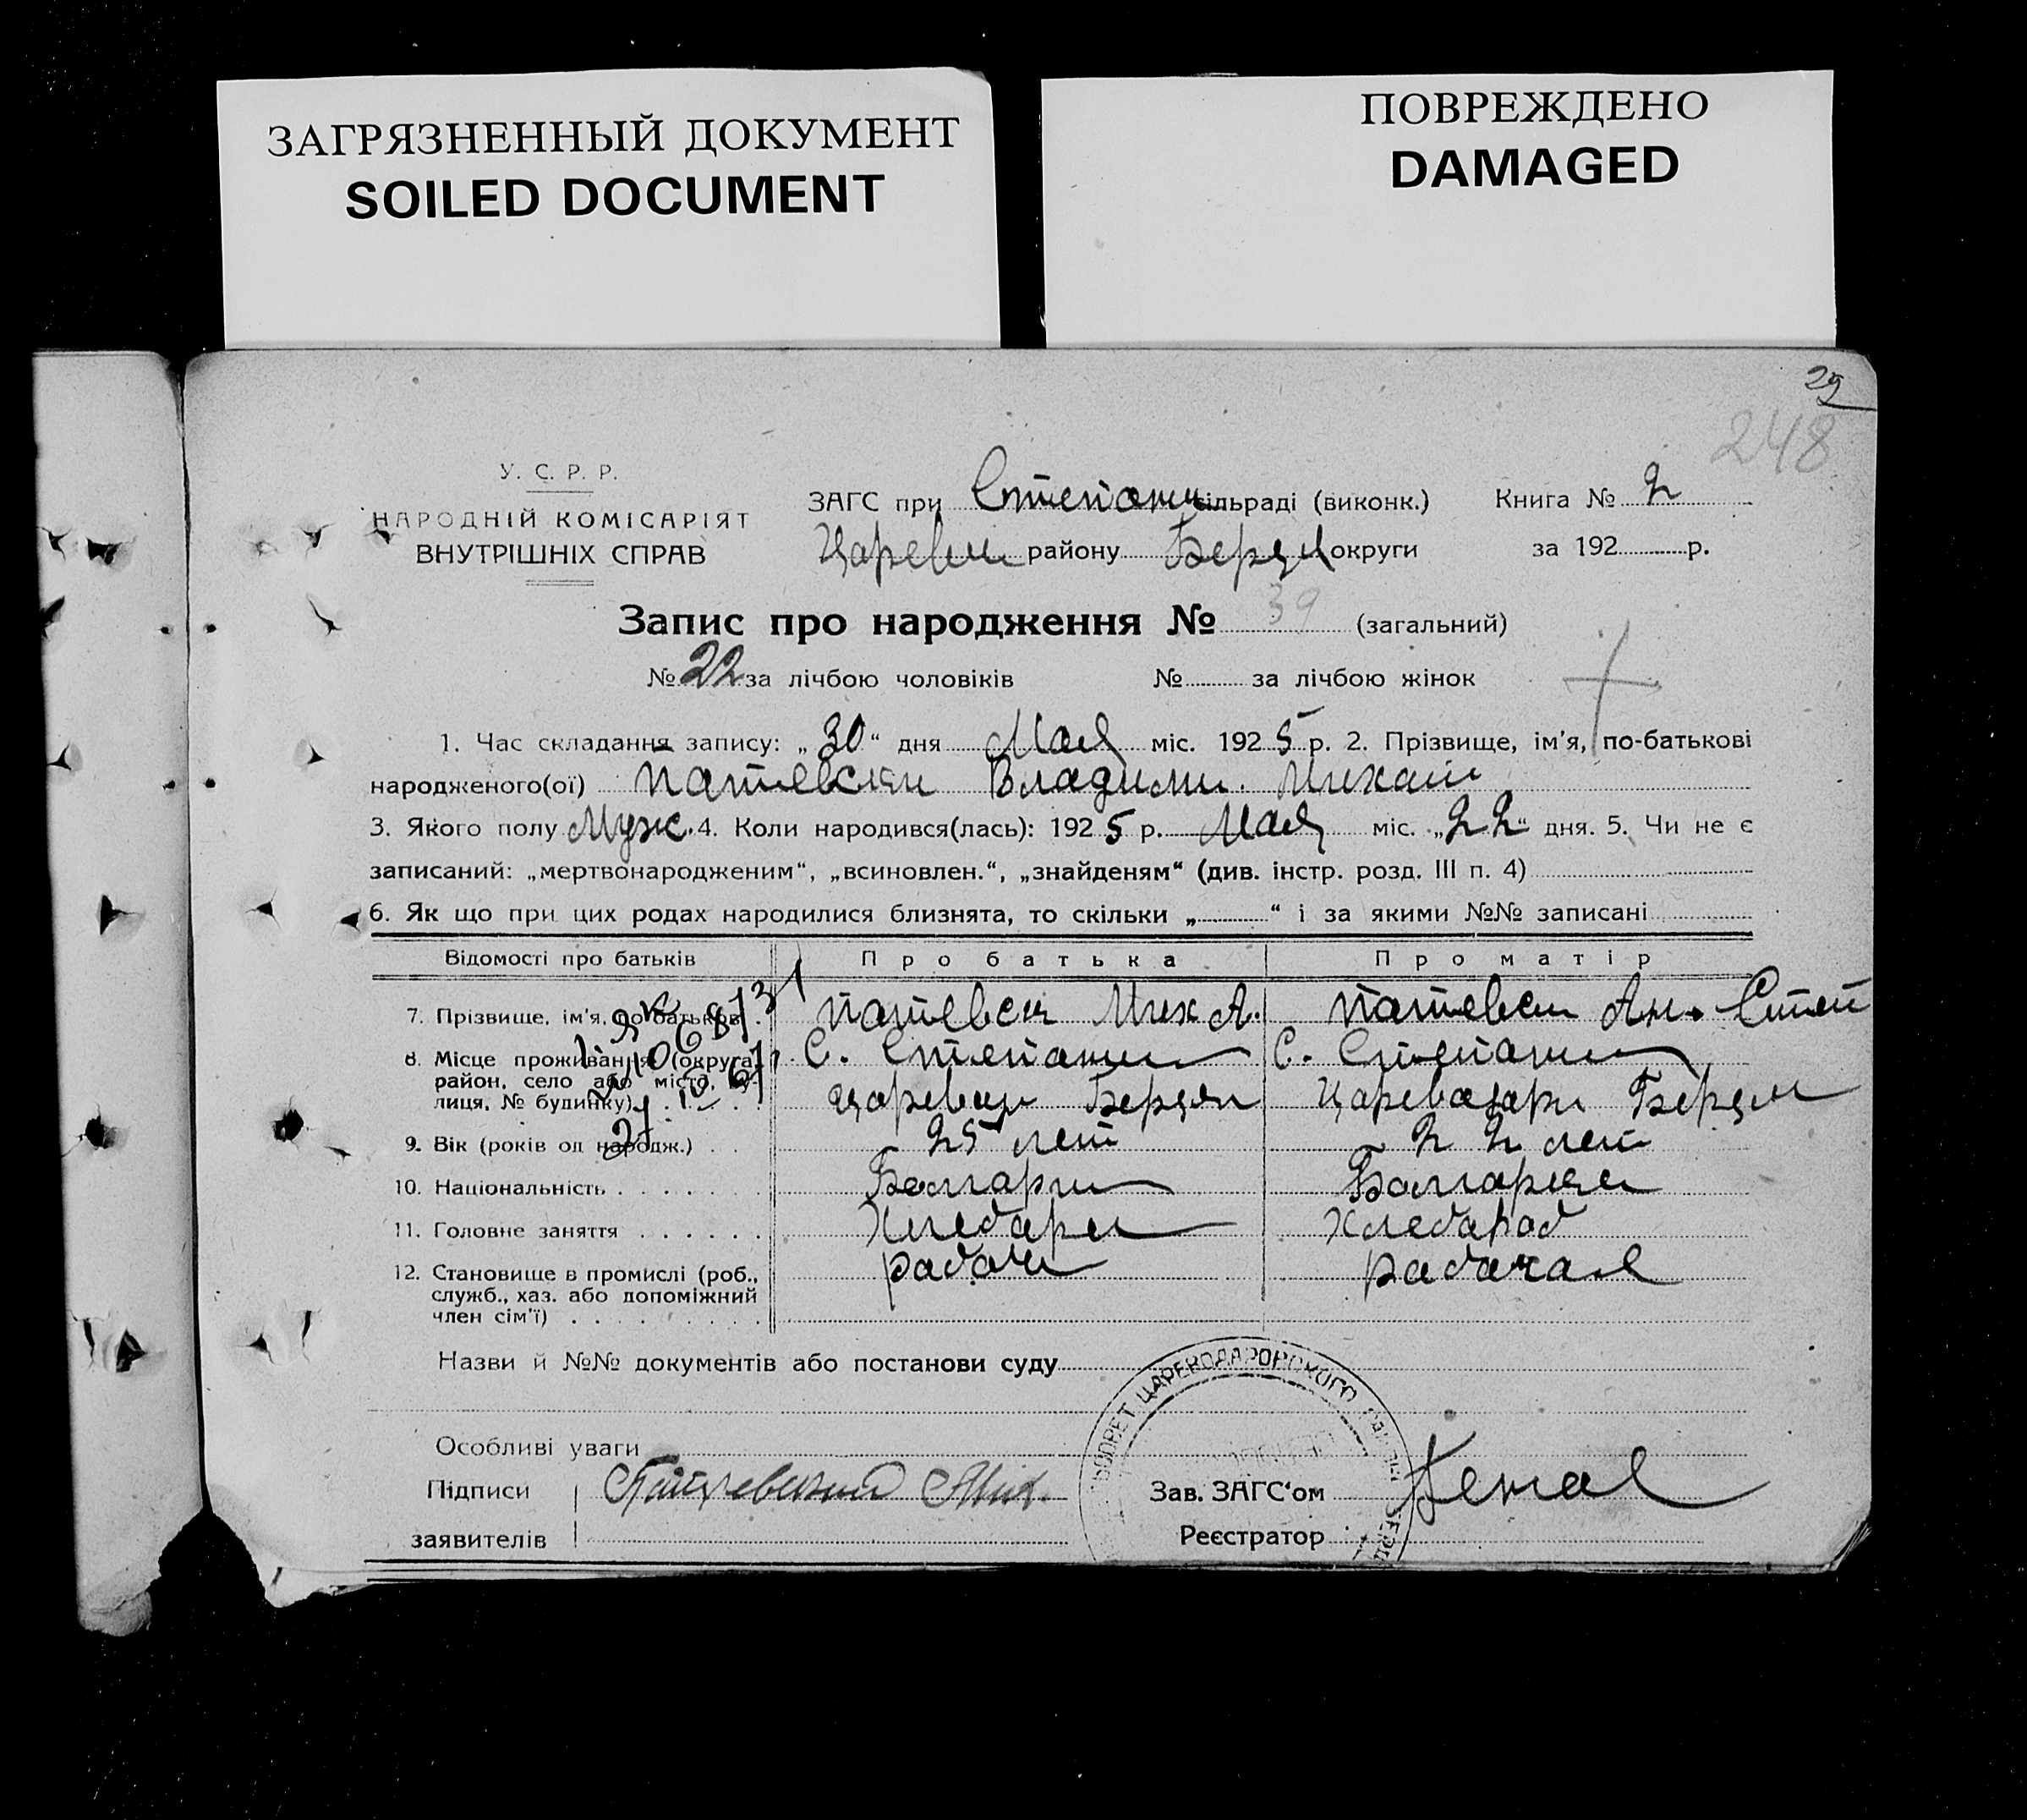 ЗАГРЯЗНЕННЫЙ ДОКУМЕНТ
SOILED DOCUMENT
ПОВРЕЖДЕНО
DAMAGED
29
248
У. С. Р. Р.
НАРОДНІЙ КОМІСАРІЯТ
ВНУТРІШНІХ СПРАВ
ЗАГС при Степани сільраді (виконк.) Книга № 2
Цареви району Бердя округи за 192 р.
Запис про народження № 39 (загальний)
№ 22 за лічбою чоловіків № за лічбою жінок
1. Час складання запису: „30“ дня Мая міс. 1925 р. 2. Прізвище, ім'я, по-батькові
народженого(ої) Патевски Владими. Михаи
3. Якого полу Муж. 4. Коли народився(лась): 1925 р. Мая міс. „22“ дня. 5. Чи не є
записаний: „мертвонародженим“, „всиновлен.“, „знайденям“ (див. інстр. розд. III п. 4)
6. Як що при цих родах народилися близнята, то скільки „ “ і за якими №№ записані
Відомості про батьків Про батька Про матір
7. Прізвище, ім'я, по батьков. Патевск Мих А. Патевск Ан. Степ
8. Місце проживання (округа, С. Степани С. Степани
район, село або місто, ву- Царевиц Бердян Цареводари Бердя
лиця, № будинку)
9. Вік (років од народж.) 25 лет 22 лет
10. Національність Болгари Болгарки
11. Головне заняття Хлебаро Хлебароб
12. Становище в промислі (роб., рабочи рабачая
служб., хаз. або допоміжний
член сім'ї)
Назви й №№ документів або постанови суду
ЦАРЕВОДАРОВСКОГО
Особливі уваги
Підписи Мих. Зав. ЗАГС'ом
заявителів Реєстратор